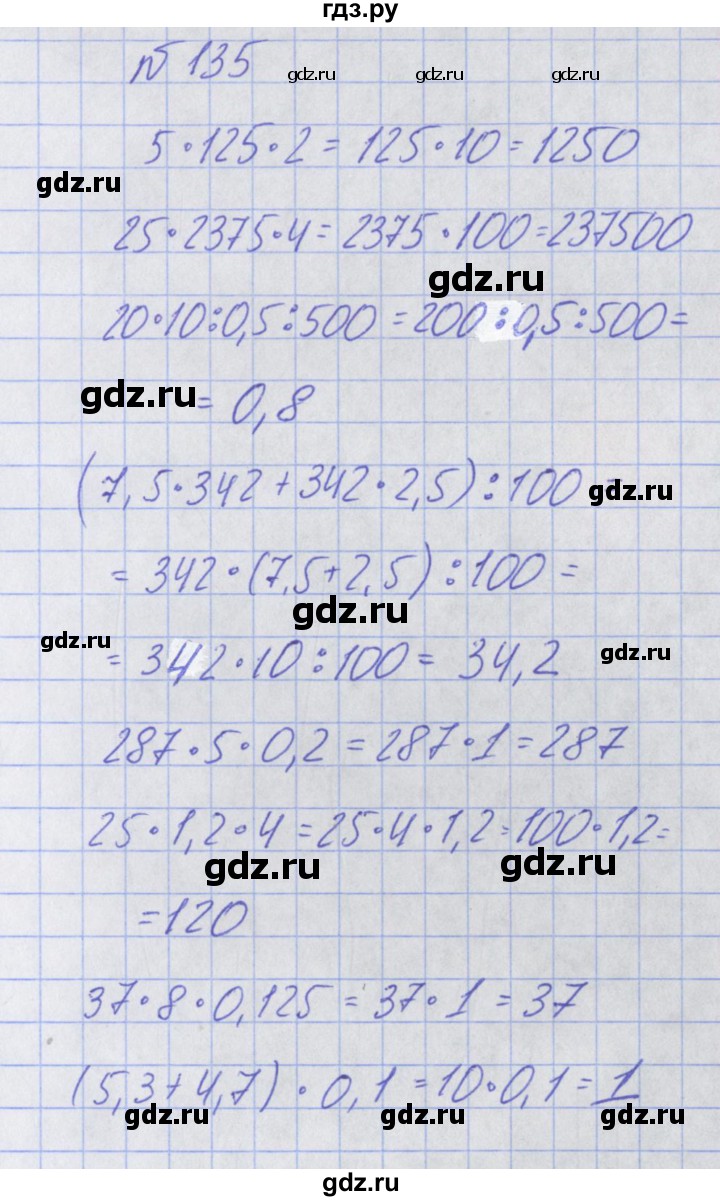 гдз.ру
№ 135
gdz.ru gdz.ru gdz.ru
5·125·2 = 125·10 = 1250
gdz.ru
25·2375·4 = 2375·100 = 237500
gdz.ru
20·10:0,5:500 = 200:0,5:500 =
gdz.ru
= 0,8
(7,5·342 + 342·2,5):100 =
gdz.ru
= 342·(7,5+2,5):100 =
gdz.ru
gdz.ru
= 342·10:100 = 34,2
gdz.ru
287·5·0,2 = 287·1 = 287
25·1,2·4 = 25·4·1,2 = 100·1,2 =
gdz.ru gdz.ru
= 120
37·8·0,125 = 37·1 = 37
(5,3+4,7)·0,1 = 10·0,1 = 1
gdz.ru gdz.ru gdz.ru
gdz.ru